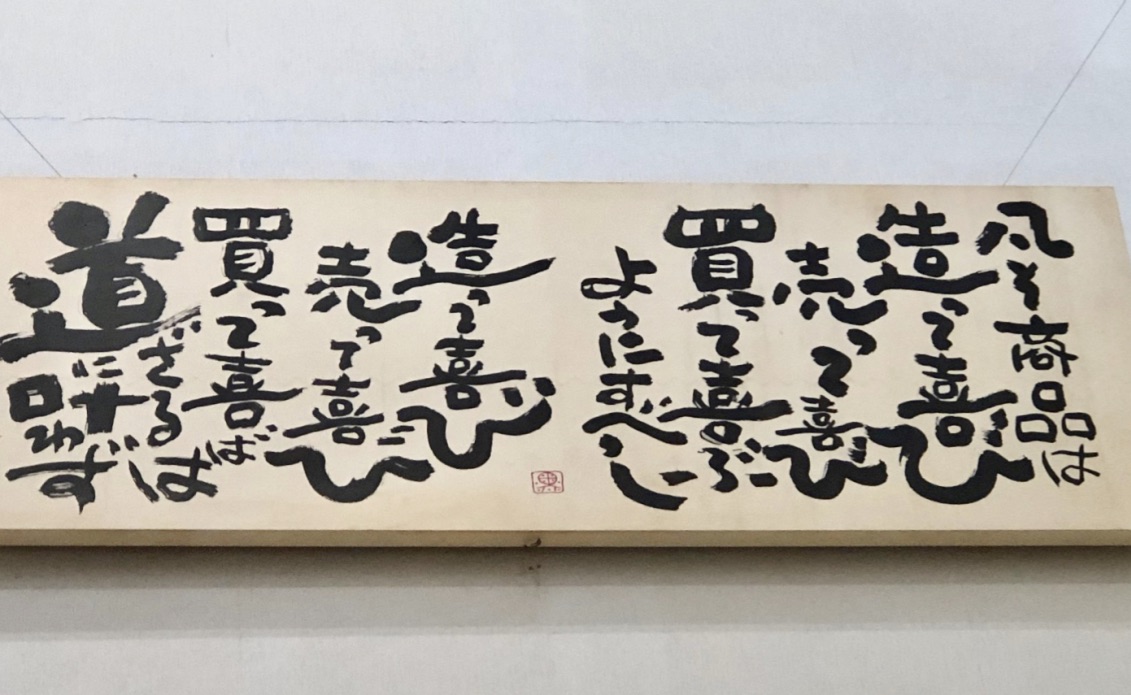 凡そ商品は
造って喜び
売って喜び
買って喜ぶ
ようにすべし
造って喜び
売って喜び
買って喜ば
ざるは
道に叶わず